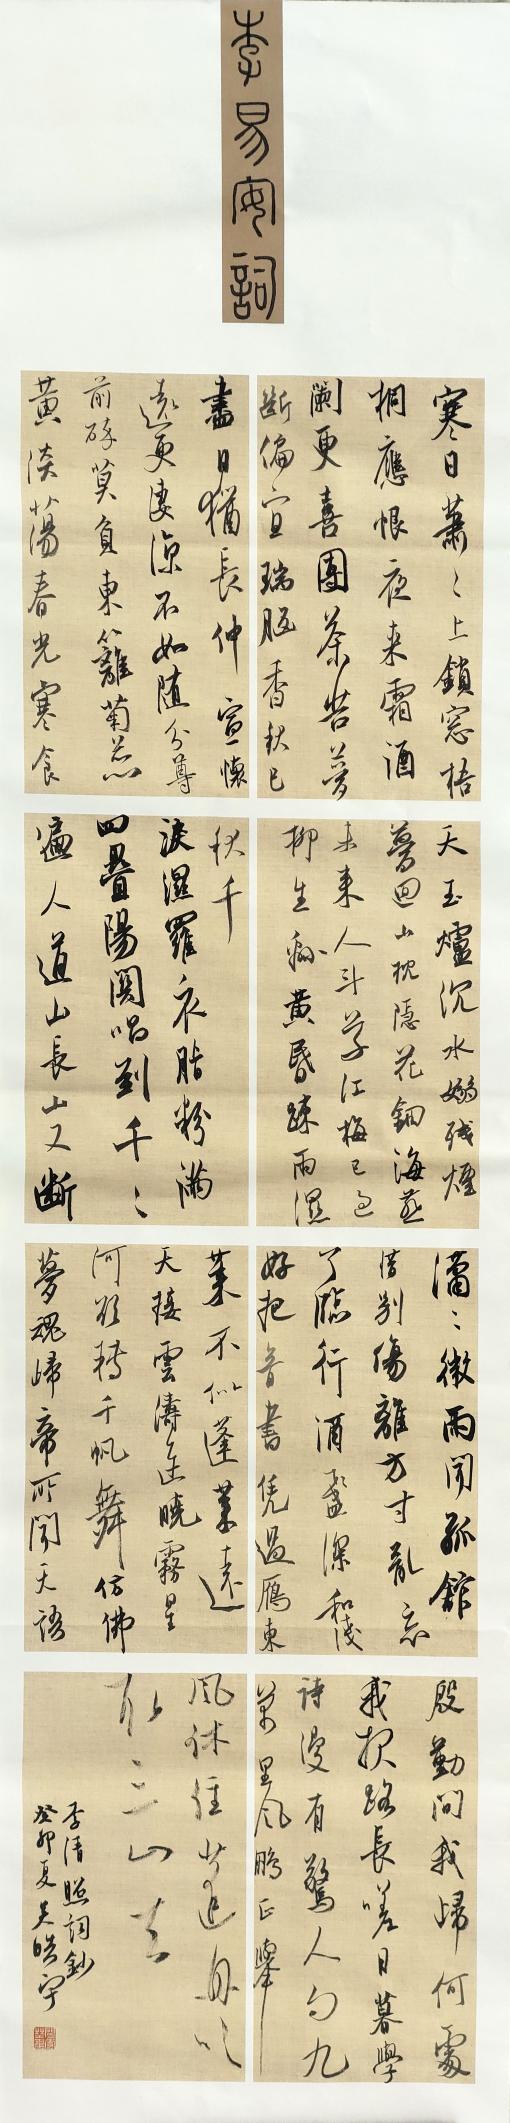 李易安詞
寒日蕭〻上鎖窓梧
桐應恨夜来霜酒
闌更喜團茶苦夢
斷偏宜瑞腦香秋已
盡日猶長仲宣懷
遠更淒涼不如随分尊
前醉莫負東籬菊蕊
黄淡蕩春光寒食
天玉爐沉水嫋殘煙
夢迴山枕隱花鈿海燕
未来人斗草江梅已過
柳生綿黄昏疎雨濕
秋千
淚濕羅衣脂粉滿
四疊陽関唱到千〻
遍人道山長山又斷
瀟〻微雨聞孤館
惜别傷離方寸亂忘
了臨行酒盞深和淺
好把音書凭過雁東
萊不似蓬萊遠
天接雲濤連曉霧星
河欲轉千帆舞仿佛
夢魂歸帝所聞天語
殷勤問我歸何處
我報路長嗟日暮學
詩漫有驚人句九
萬里風鵬正舉
風休住蓬舟吹
取三山去
李清照詞鈔
癸卯夏吴皓宇